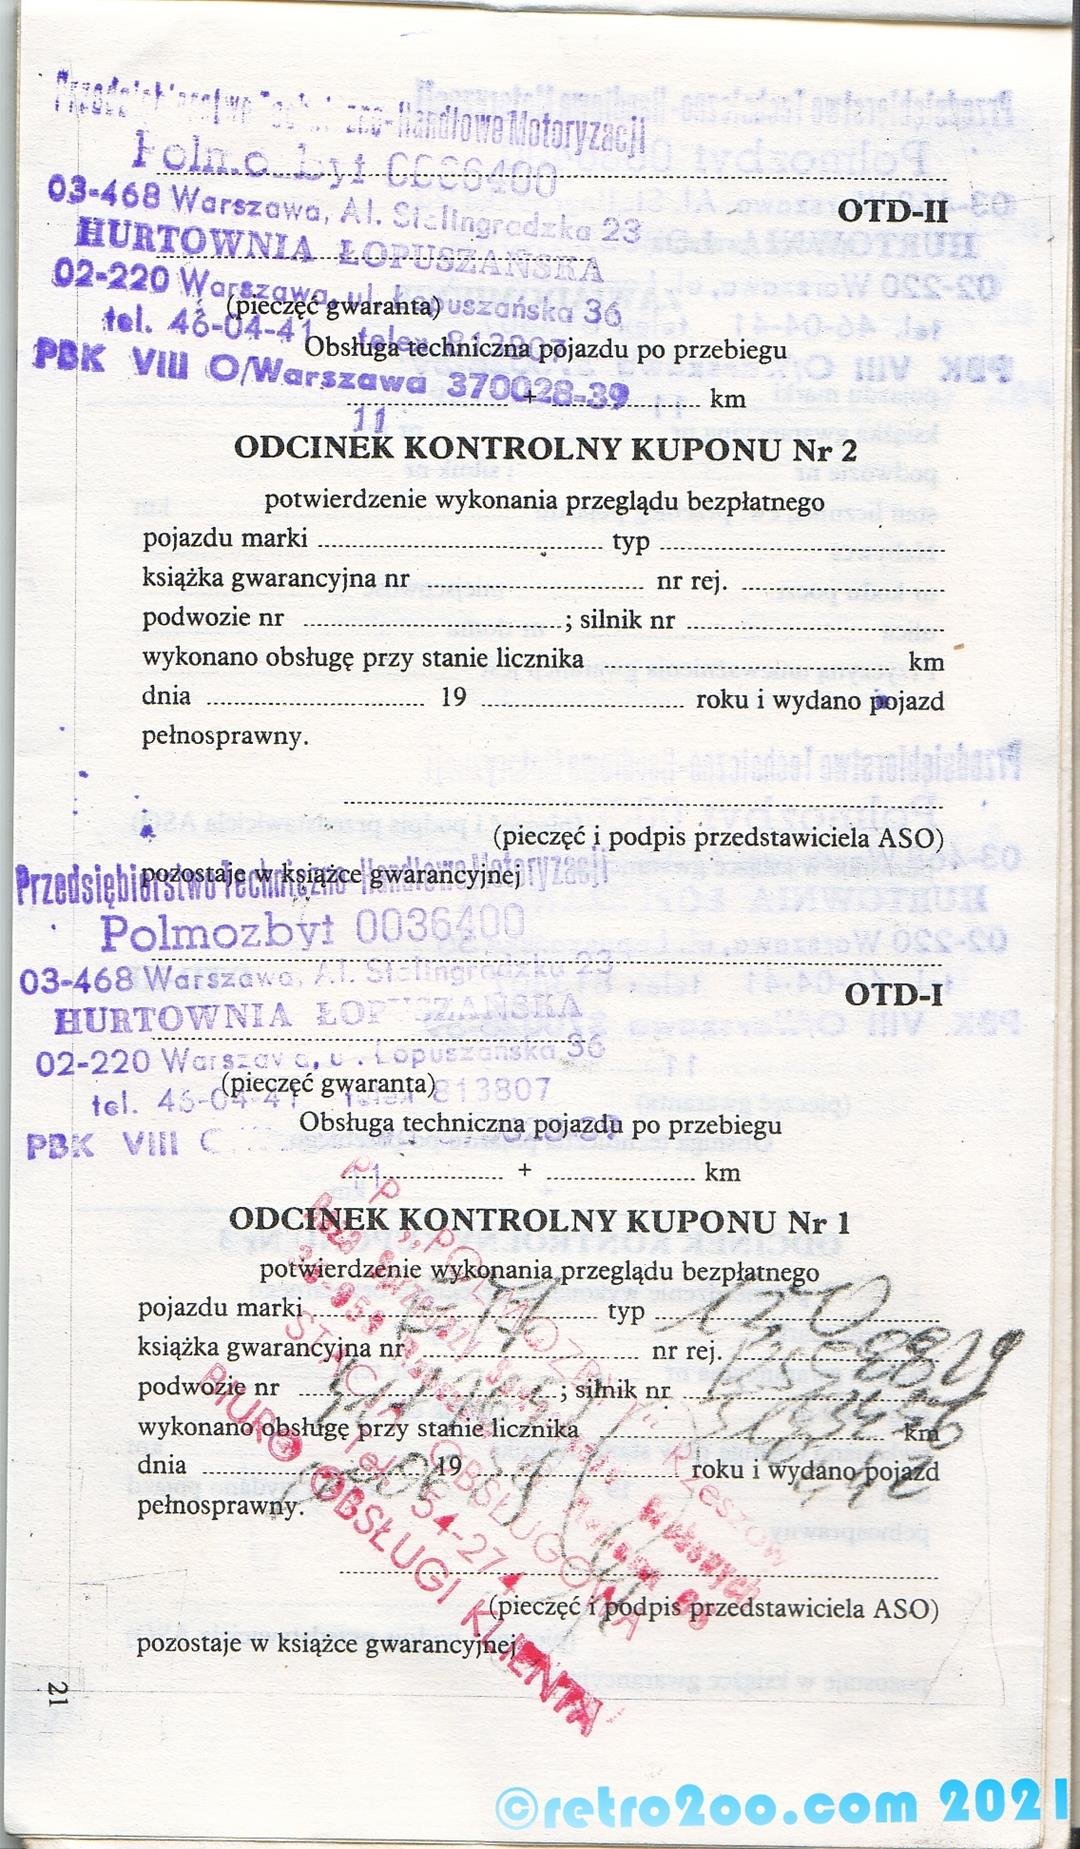 Przedsiębiorstwo Techniczno-Handlowe Motoryzacji
Polmozbyt 0036400
03-468 Warszawa, Al. Stalingradzka 23
OTD-II
HURTOWNIA ŁOPUSZAŃSKA
02-220 Warszawa, ul. Łopuszańska 36
(pieczęć gwaranta)
tel. 46-04-41 telex 813807
Obsługa techniczna pojazdu po przebiegu
PBK VIII O/Warszawa 370028-39
+ km
11
ODCINEK KONTROLNY KUPONU Nr 2
potwierdzenie wykonania przeglądu bezpłatnego
pojazdu marki typ
książka gwarancyjna nr nr rej.
podwozie nr ; silnik nr
wykonano obsługę przy stanie licznika km
dnia 19 roku i wydano pojazd
pełnosprawny.
(pieczęć i podpis przedstawiciela ASO)
pozostaje w książce gwarancyjnej
Przedsiębiorstwo Techniczno-Handlowe Motoryzacji
Polmozbyt 0036400
03-468 Warszawa, Al. Stalingradzka 23
OTD-I
HURTOWNIA ŁOPUSZAŃSKA
02-220 Warszawa, ul. Łopuszańska 36
(pieczęć gwaranta)
tel. 46-04-41 telex 813807
Obsługa techniczna pojazdu po przebiegu
PBK VIII
+ km
ODCINEK KONTROLNY KUPONU Nr 1
potwierdzenie wykonania przeglądu bezpłatnego
pojazdu marki typ 120
książka gwarancyjna nr nr rej.
podwozie nr ; silnik nr
wykonano obsługę przy stanie licznika km
dnia 19 roku i wydano pojazd
pełnosprawny.
(pieczęć i podpis przedstawiciela ASO)
pozostaje w książce gwarancyjnej
PP „POLMOZBYT" Rzeszów
STACJA OBSŁUGOWA
tel. 54-274
BIURO OBSŁUGI KLIENTA
21
©retro2oo.com 2021